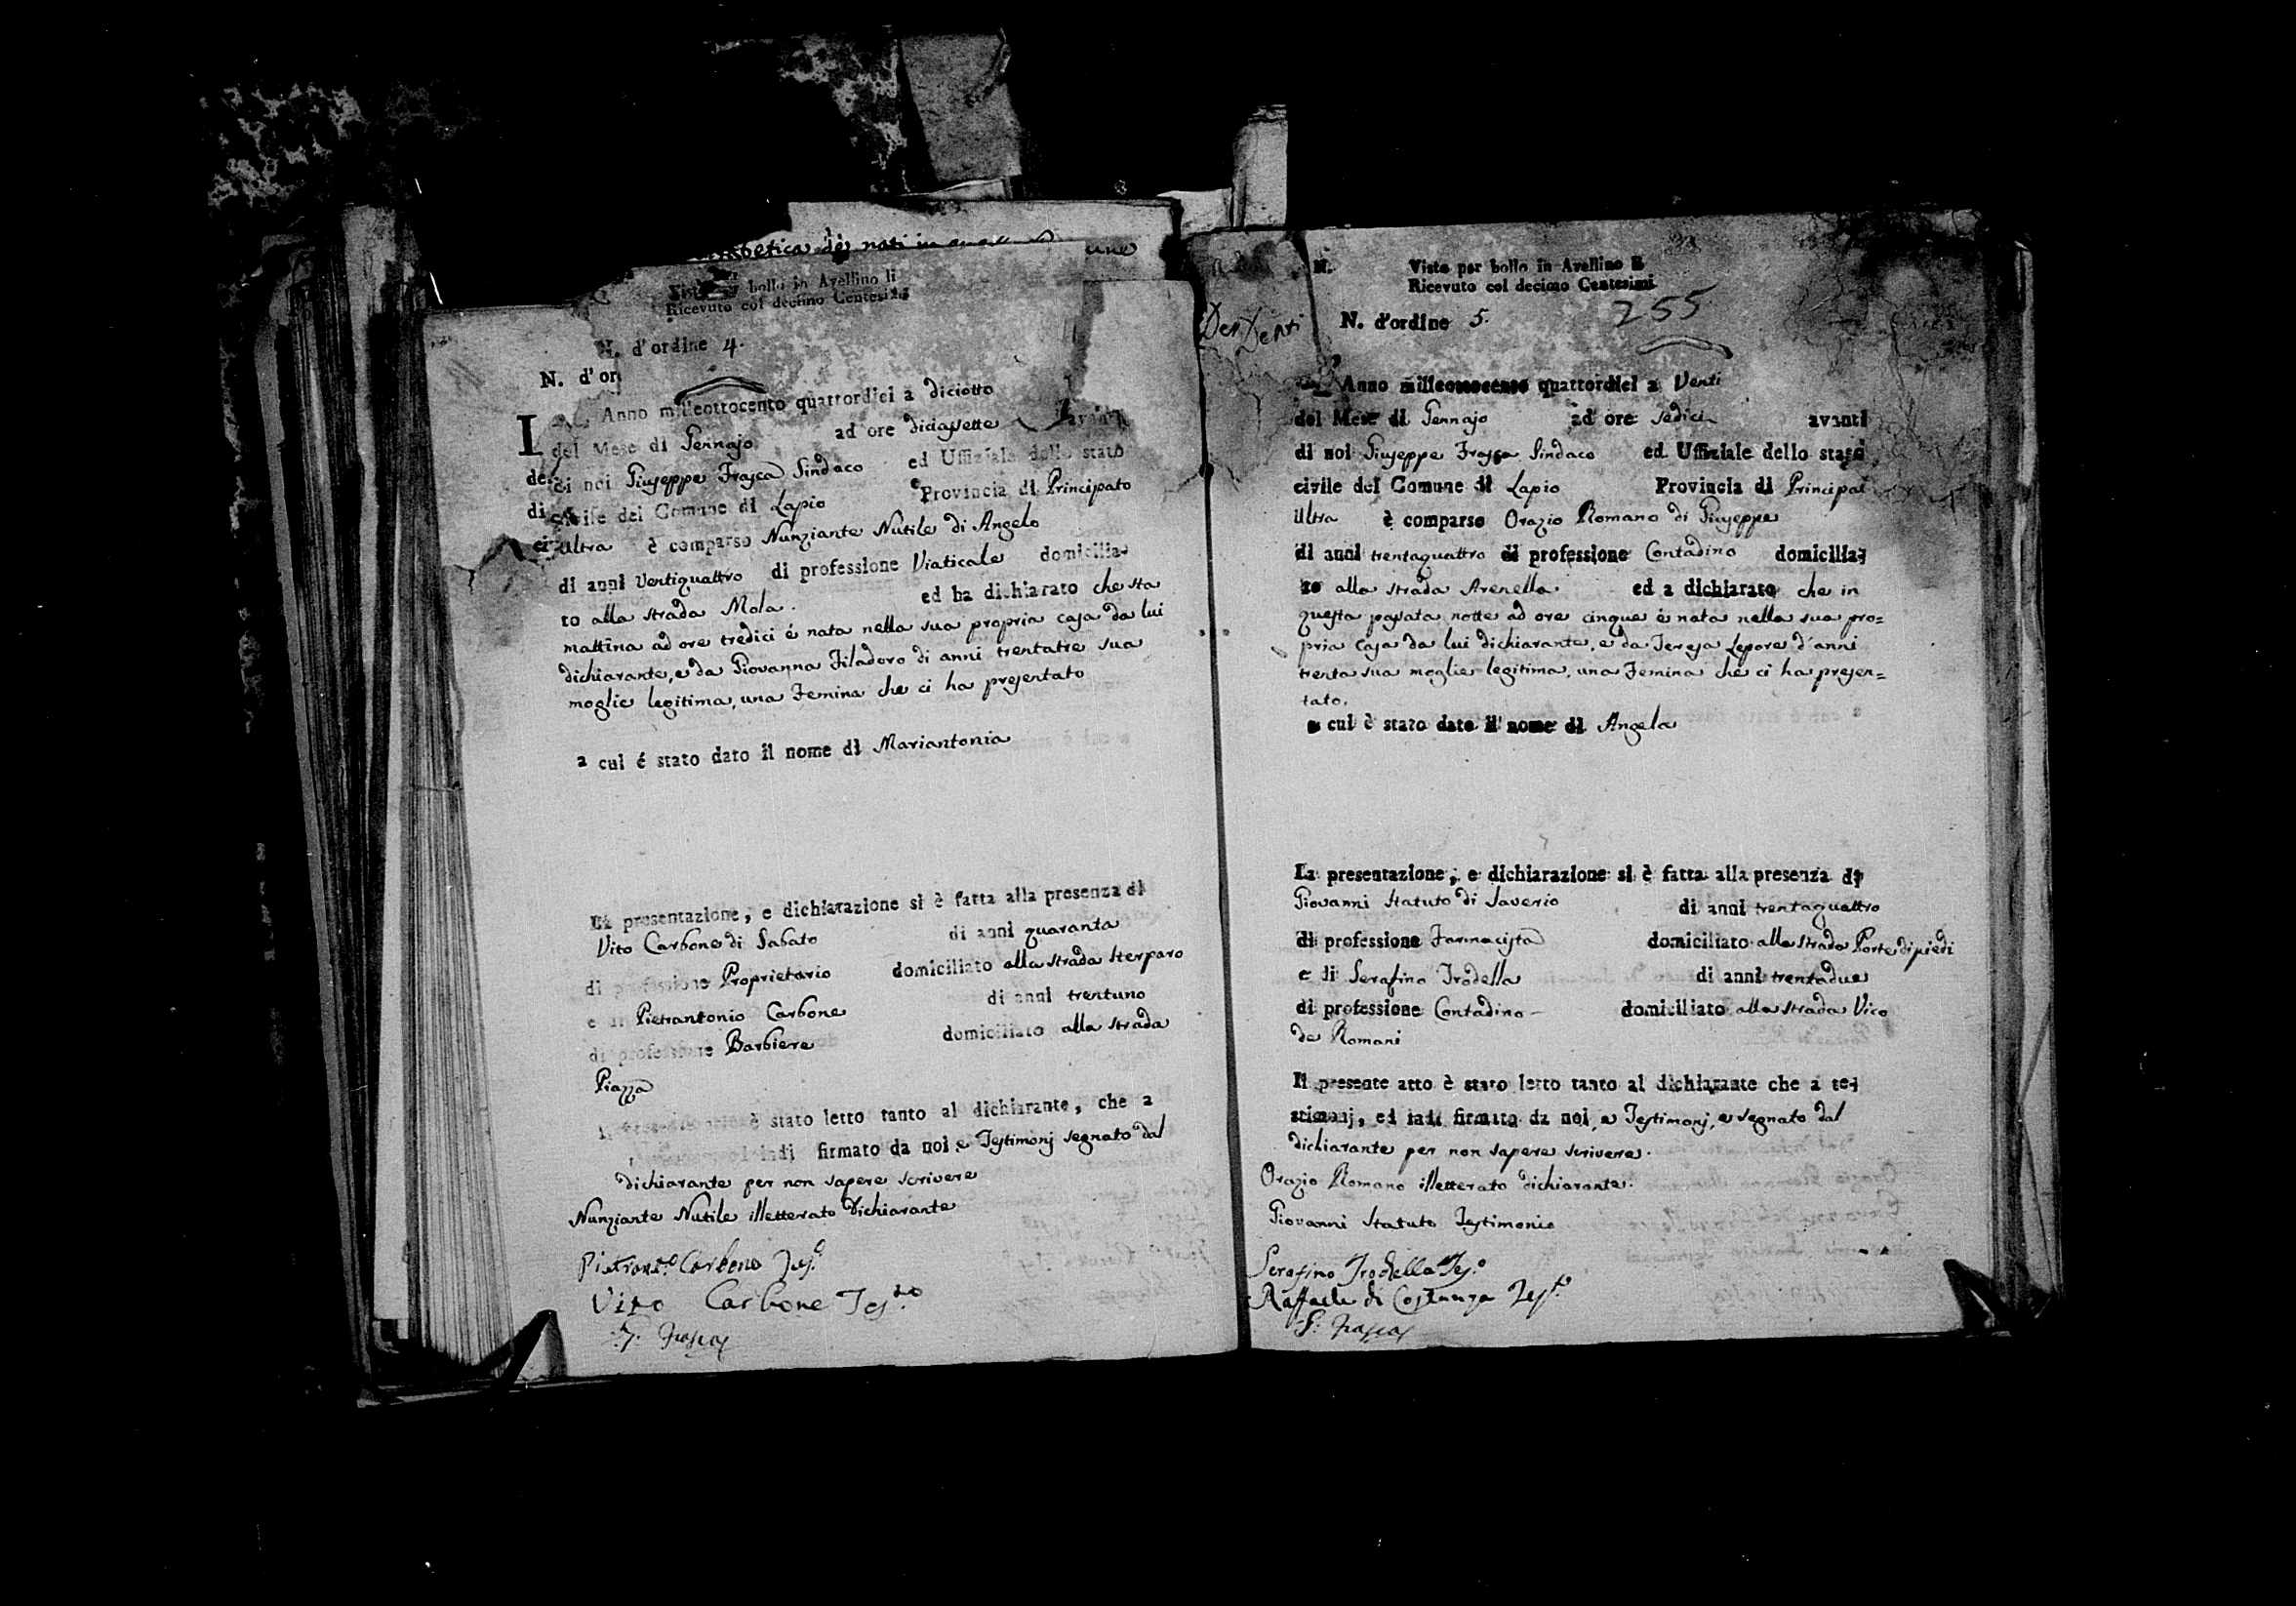 betica de nati in une
bollo in Avellino li
Ricevuto col decimo Centesimi
N. d'ordine 4.
N. d'or
I Anno milleottocento quattordici a diciotto
del Mese di Gennajo ad ore diciassette avanti
di noi Giuseppe Frasca Sindaco ed Uffiziale dello stato
civile del Comune di Lapio Provincia di Principato
Ultra è comparso Nunziante Nutile di Angelo
di anni ventiquattro di professione Viaticale domicilia-
to alla strada Mola. ed ha dichiarato che sta
mattina ad ore tredici é nata nella sua propria casa da lui
dichiarante, e da Giovanna Filadoro di anni trentatre sua
moglie legitima, una Femina che ci ha presentato
a cui é stato dato il nome di Mariantonia
La presentazione, e dichiarazione si è fatta alla presenza di
Vito Carbone di Sabato di anni quaranta
di professione Proprietario domiciliato alla strada Sterparo
e di Pietrantonio Carbone di anni trentuno
di professione Barbiere domiciliato alla strada
Piazza
è stato letto tanto al dichiarante, che a
indi firmato da noi e Testimonj segnato dal
dichiarante per non sapere scrivere
Nunziante Nutile illetterato dichiarante
Pietrant.o Carbone Tes.o
Vito Carbone Tes.to
Frasca
N. Visto per bollo in Avellino li
Ricevuto col decimo Centesimi
255
N. d'ordine 5.
Anno milleottocento quattordici a Venti
del Mese di Gennajo ad ore sedici avanti
di noi Giuseppe Frasca Sindaco ed Uffiziale dello stato
civile del Comune di Lapio Provincia di Principat
Ultra è comparso Orazio Romano di Giuseppe
di anni trentaquattro di professione Contadino domicilia-
to alla strada Arenella. ed a dichiarato che in
questa passata notte ad ore cinque è nata nella sua pro=
pria casa da lui dichiarante, e da Teresa Lepore d'anni
trenta sua moglie legitima, una Femina che ci ha presen=
tato.
a cui è stato dato il nome di Angela
La presentazione, e dichiarazione si è fatta alla presenza di
Giovanni Statuto di Saverio di anni trentaquattro
di professione Farmacista domiciliato alla strada Porte di piedi
e di Serafino Trodella di anni trentadue
di professione Contadino - domiciliato alla strada Vico
de Romani
Il presente atto è stato letto tanto al dichiarante che a te-
stimonj, ed indi firmato da noi, e Testimonj, e segnato dal
dichiarante per non sapere scrivere.
Orazio Romano illetterato dichiarante.
Giovanni Statuto Testimonio
Serafino Trodella Tes.o
Raffaele di Costanza Tes.o
Frasca